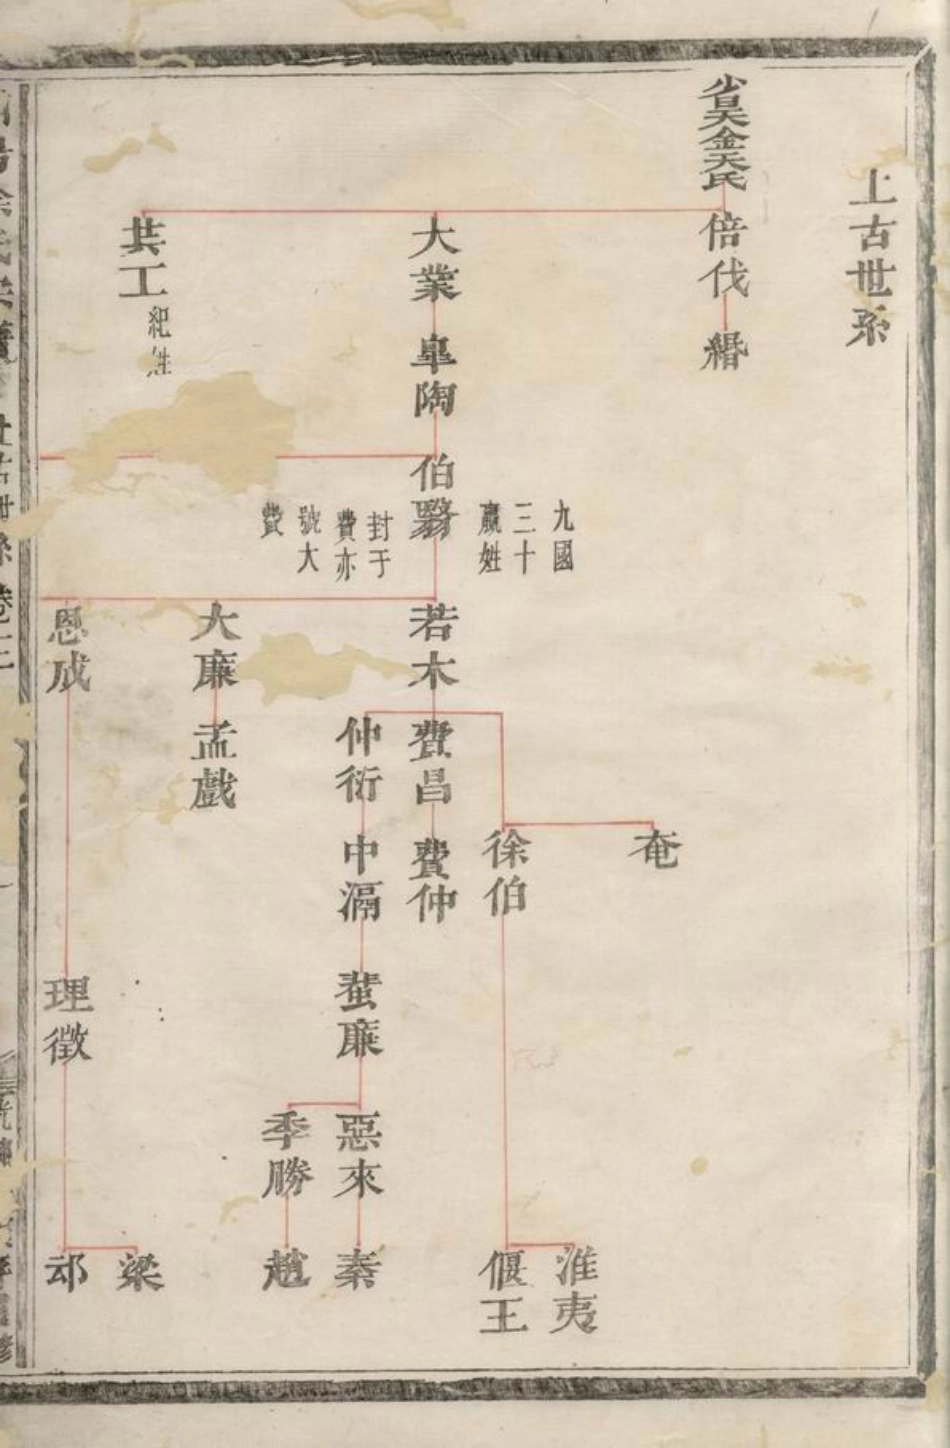 上古世系
省昊金天氏
倍伐
緡
大業
皐陶
伯翳
九國
三十
嬴姓
封于
費亦
號大
費
共工
紀姓
若木
大廉
恩成
費昌
仲衍
孟戲
奄
徐伯
費仲
中滆
蜚廉
理徵
惡來
季勝
淮夷
偃王
秦
趙
梁